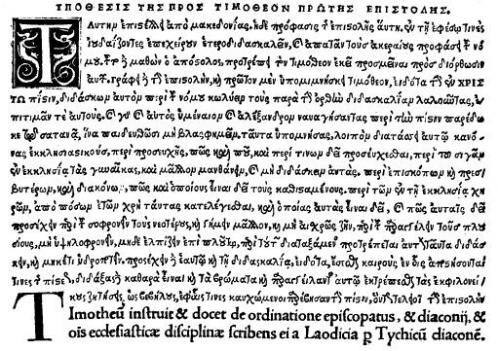 ΥΠΟΘΕΣΙΣ ΤΗΣ ΠΡΟΣ ΤΙΜΟΘΕΟΝ ΠΡΩΤΗΣ ΕΠΙΣΤΟΛΗΣ.
ΤΑύτην ἐπιστέλλει ἀπὸ μακεδονίας. ἡ δὲ πρόφασις τῆς ἐπιστολῆς αὕτη. ἐν τῇ ἐφέσῳ τινὲς
ἰουδαΐζοντες ἐπεχείρουν ἑτεροδιδασκαλεῖν, καὶ ἀπατᾶν τοὺς ἀκεραίους προφάσει τοῦ νό
μου. μαθὼν ὁ ἀπόστολος, προτρέπει τὸν τιμόθεον ἐκεῖ προσμεῖναι πρὸς διόρθωσιν
αὐτῶν. γράφει τὴν ἐπιστολὴν, καὶ πρῶτον μὲν ὑπομιμνήσκει τιμόθεον, τὴν ἐν ΧΡΙΣ
ΤΩ πίστιν, διδάσκων αὐτὸν περὶ τοῦ νόμου κωλύειν τοὺς παρὰ τὴν ὀρθὴν διδασκαλίαν λαλοῦντας, ἐ
πιτιμᾶν τε αὐτούς. καὶ αὐτοὺς ὑμέναιον καὶ ἀλέξανδρον ναυαγήσαντας περὶ τὴν πίστιν παρέδω
κε τῷ σατανᾷ, ἵνα παιδευθῶσι μὴ βλασφημεῖν. ταῦτα ὑπομνήσας, λοιπὸν διατάσσει αὐτῷ κανό
νας ἐκκλησιαστικοὺς, περὶ προσευχῆς, πῶς καὶ ποῦ, καὶ περὶ τίνων δεῖ προσεύχεσθαι, περὶ τοῦ σιγᾶν
ἐν ἐκκλησίᾳ τὰς γυναῖκας, καὶ μᾶλλον μανθάνειν, καὶ μὴ διδάσκειν αὐτάς. περὶ ἐπισκόπων καὶ πρεσ
βυτέρων, καὶ διακόνων, πῶς καὶ ὁποίους εἶναι δεῖ τοὺς καθισταμένους. περὶ τῶν ἐν τῇ ἐκκλησίᾳ χη
ρῶν, ἀπὸ πόσων ἐτῶν χρὴ ταύτας καταλέγεσθαι, καὶ ὁποίας αὐτὰς εἶναι δεῖ, καὶ πῶς αὐταῖς δεῖ
προσέχειν καὶ τοῦ σωφρονεῖν τοὺς νεωτέρους, καὶ καὶ μὴ αἰσχροῖς ζῆν, καὶ τοῦ παραγγέλλειν τοὺς πλου
σίους, μὴ ὑψηλοφρονεῖν, μηδὲ ἐλπίζειν ἐπὶ πλούτῳ, προτρέπεται διδάσκειν
προσέχειν ἑαυτῷ καὶ τῇ διδασκαλίᾳ, ὕστεροις καιροῖς ἐν αἷς
τινες τῆς πίστεως, διδάξας καθαρὰ εἶναι καὶ τὰ βρώματα παραγγέλλει αὐτῷ ἐκτρέπεσθαι
τὰς ζητήσεις, ὡς βεβήλους, τινες τὴν πίστιν, τελειοῖ τὴν ἐπιστολὴν
Timotheū instruit & docet de ordinatione episcopatus, & diaconij, &
oīs ecclesiasticæ disciplinæ scribens ei a Laodicia ꝑ Tychicū diaconē.